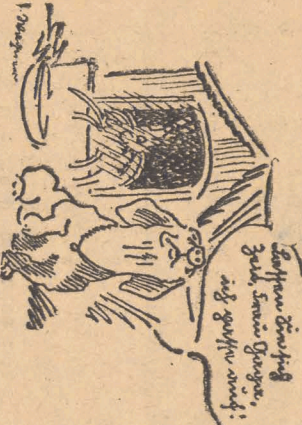 Lassen Sie sich
Zeit, Frau
ich passe auf!